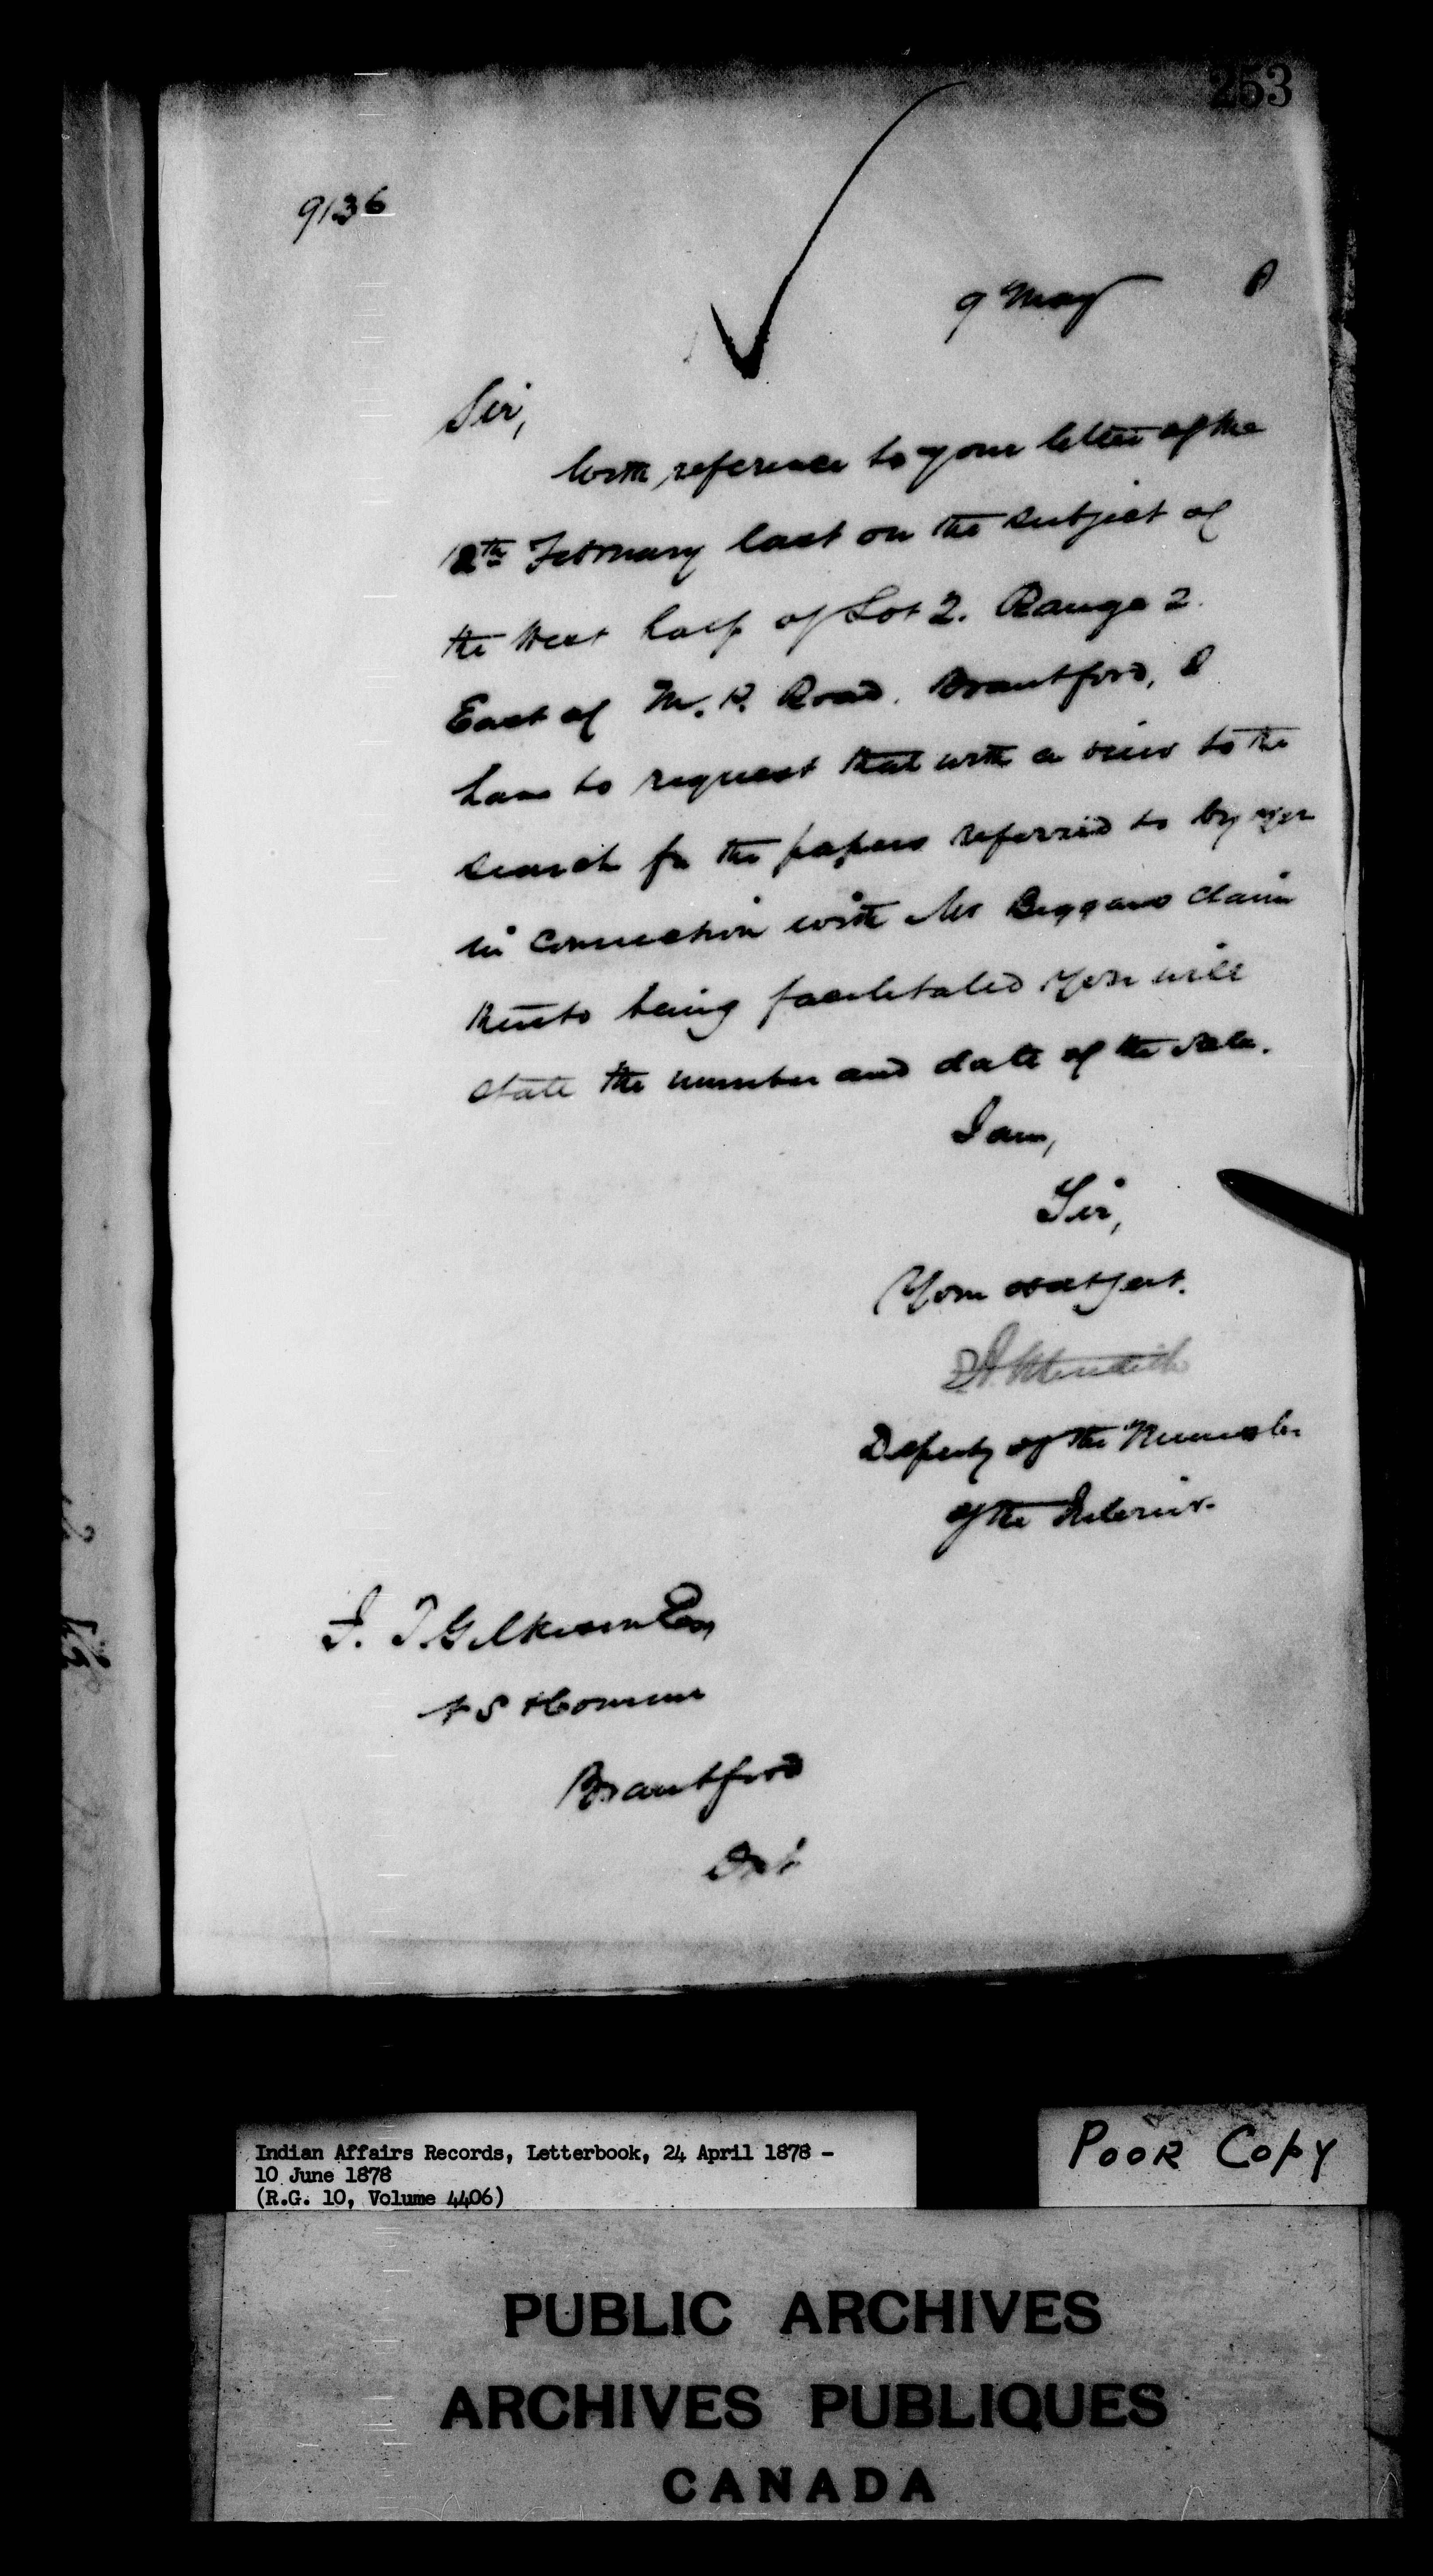 253
9136
9 May 8
Sir,
With reference to your letter of the
12th February last on the subject of
the West half of Lot 2. Range 2
East of M. P. Road. Brantford, I
have to request that with a view to the
search for the papers referred to by you
in connection with Mr Biggars claim
thereto being facilitated you will
state the number and date of the sale.
I am,
Sir,
Your obdt Servt.
Meredith
Deputy of the Minister
of the Interior.
J. T. Gilkison Esq
Brantford
Ont
Indian Affairs Records, Letterbook, 24 April 1878 -
10 June 1878
(R.G. 10, Volume 4406)
POOR COPY
PUBLIC ARCHIVES
ARCHIVES PUBLIQUES
CANADA